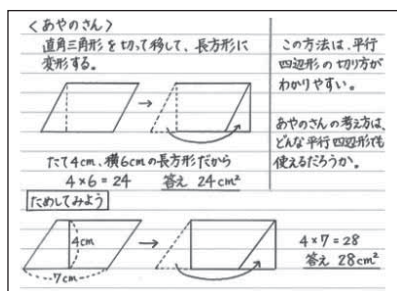 〈あやのさん〉
直角三角形を切って移して、長方形に
変形する。
たて4cm、横6cmの長方形だから
4×6=24 答え 24cm²
この方法は、平行
四辺形の切り方が
わかりやすい。
あやのさんの考え方は、
どんな平行四辺形でも
使えるだろうか。
ためしてみよう
4cm
7cm
4×7=28
答え 28cm²